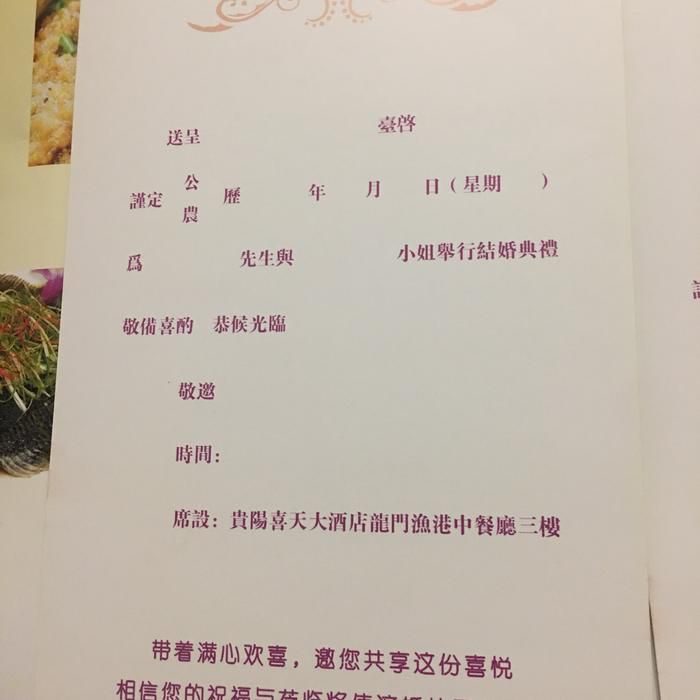 送呈 臺啓
謹定 公 農 歷 年 月 日(星期 )
爲 先生與 小姐舉行結婚典禮
敬備喜酌 恭候光臨
敬邀
時間:
席設: 貴陽喜天大酒店龍門漁港中餐廳三樓
带着满心欢喜, 邀您共享这份喜悦
相信您的祝福与莅临将使这